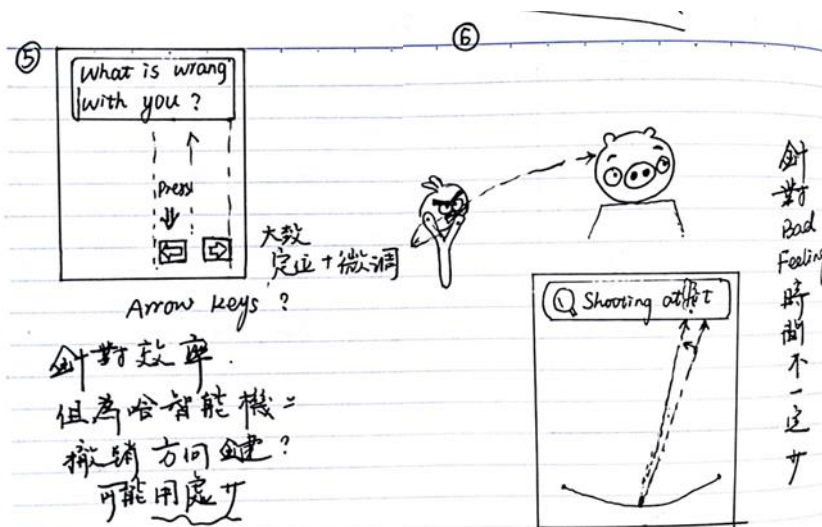 ⑤
What is wrang
with you ?
Press
大致
定位 + 微调
Arrow keys ?
針對效率.
但為啥智能機=
撤銷方向鍵?
可能用處少
⑥
Shooting at
針對
Bad
Feeling
時間不一定少